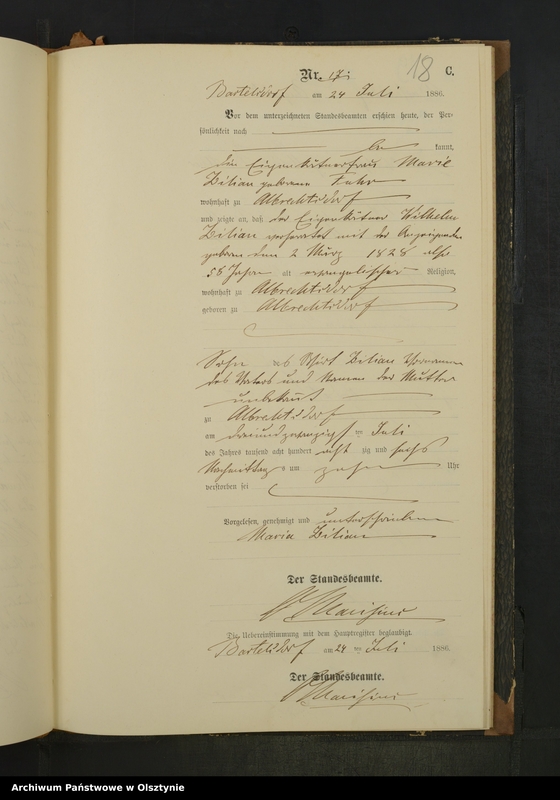 18
Nr. 17.
C.
Bartelsdorf am 24 Juli 1886.
Vor dem unterzeichneten Standesbeamten erschien heute, der Per-
sönlichkeit nach
be kannt,
die Eigenkäthnerfrau Marie
Bilian geborene
wohnhaft zu Albrechtsdorf
und zeigte an, daß der Eigenkäthner Wilhelm
Bilian verheiratet mit der Anzeigenden
geboren den 2 März 1828 also
58 Jahre alt evangelischer Religion,
wohnhaft zu Albrechtsdorf
geboren zu Albrechtsdorf
Sohn des Wirt Bilian Vornamen
des Vaters und Namen der Mutter
unbekannt
zu Albrechtsdorf
am dreiundzwanzigsten Juli
des Jahres tausend acht hundert acht zig und sechs
Nachmittags um zehn Uhr
verstorben sei
Vorgelesen, genehmigt und unterschrieben
Maria Bilian
Der Standesbeamte.
Die Uebereinstimmung mit dem Hauptregister beglaubigt.
Bartelsdorf am 24 ten Juli 1886.
Der Standesbeamte.
Archiwum Państwowe w Olsztynie